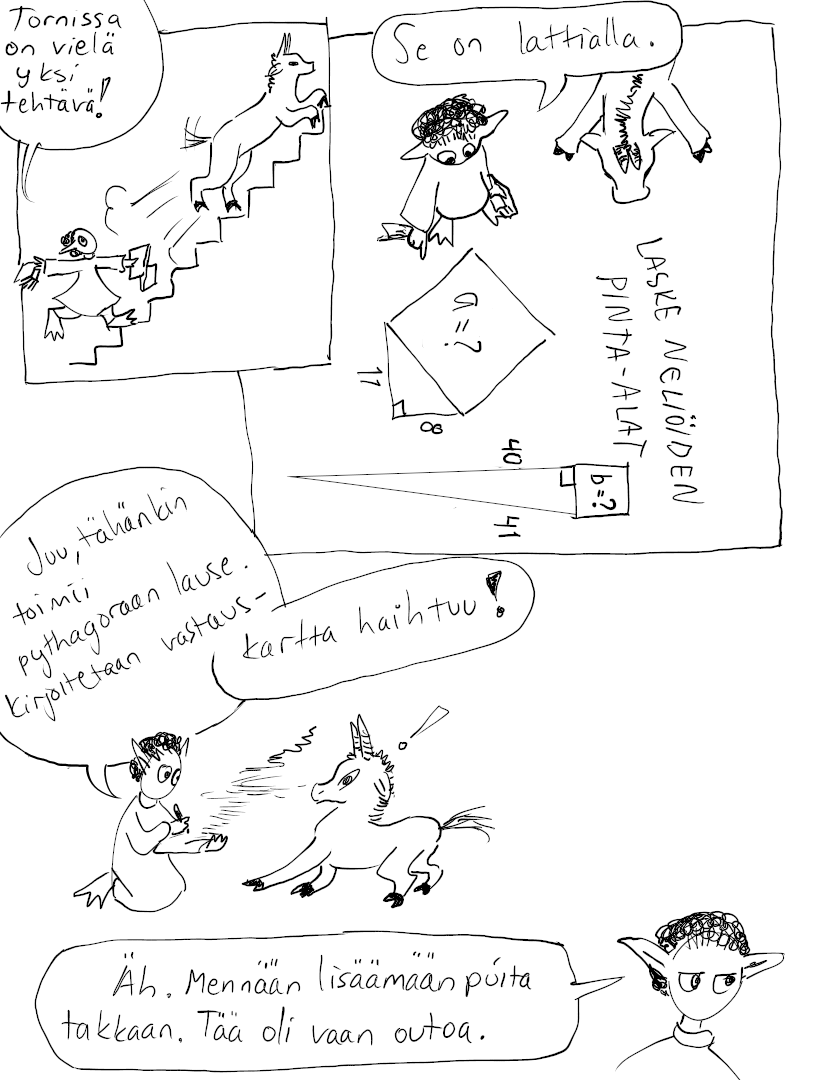 Tornissa
on vielä
yksi
tehtävä!
Se on lattialla.
LASKE NELIÖIDEN
PINTA-ALAT
a=?
11
8
40
b=?
41
Juu, tähänkin
toimii
pythagoraan lause.
kirjoitetaan vastaus-
kartta haihtuu!
Äh. Mennään lisäämään puita
takkaan. Tää oli vaan outoa.